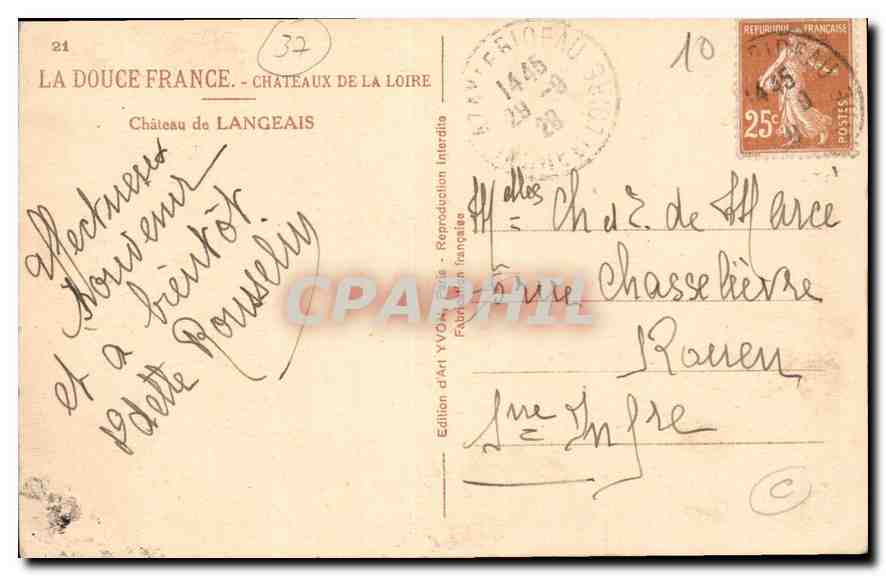 21
LA DOUCE FRANCE. - CHATEAUX DE LA LOIRE
Château de LANGEAIS
37
Affectueux
Souvenir
et à bientôt.
Odette Rousselin
Edition d'Art YVON, Paris - Reproduction Interdite
Fabrication française
CPAPHIL
14 45
29 - 9
28
10
REPUBLIQUE FRANÇAISE
25c
POSTES
14 45
Melles Ch et E. de Marcé
rue Chasselièvre
Rouen
Sne Infre
C